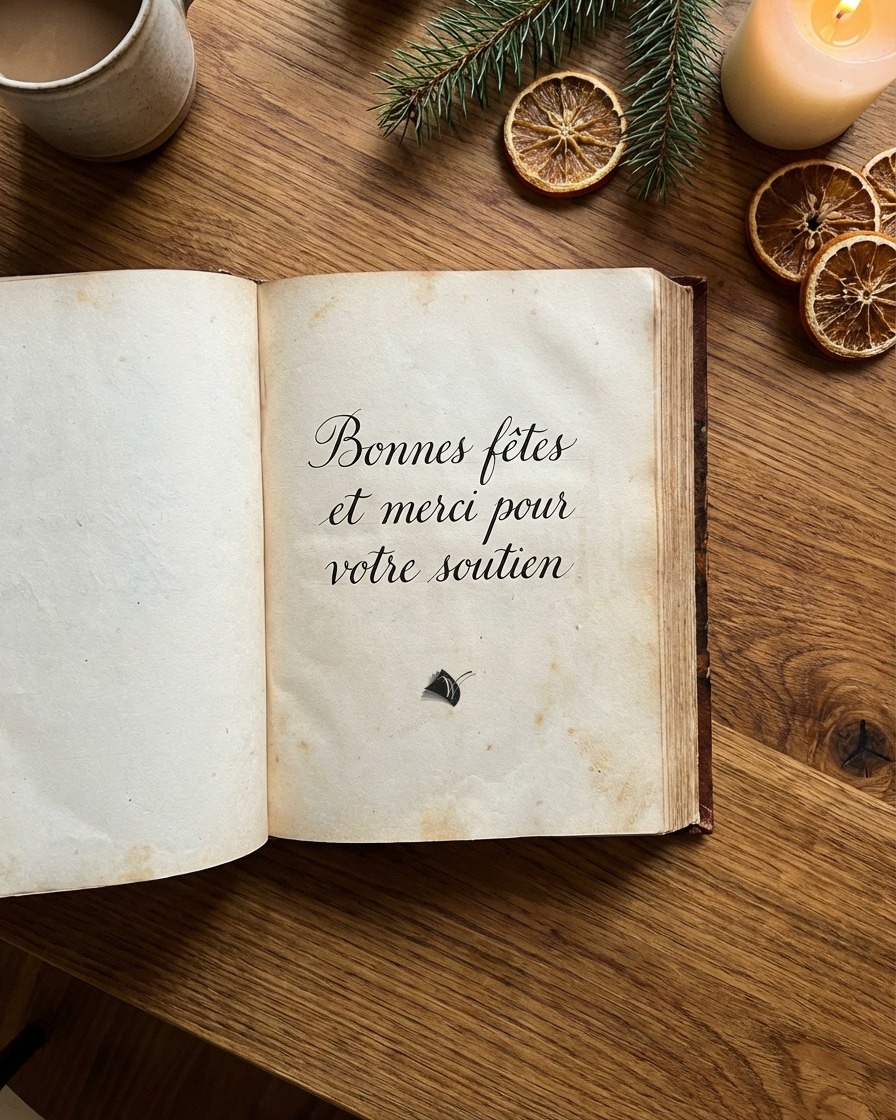 Bonnes fêtes
et merci pour
votre soutien